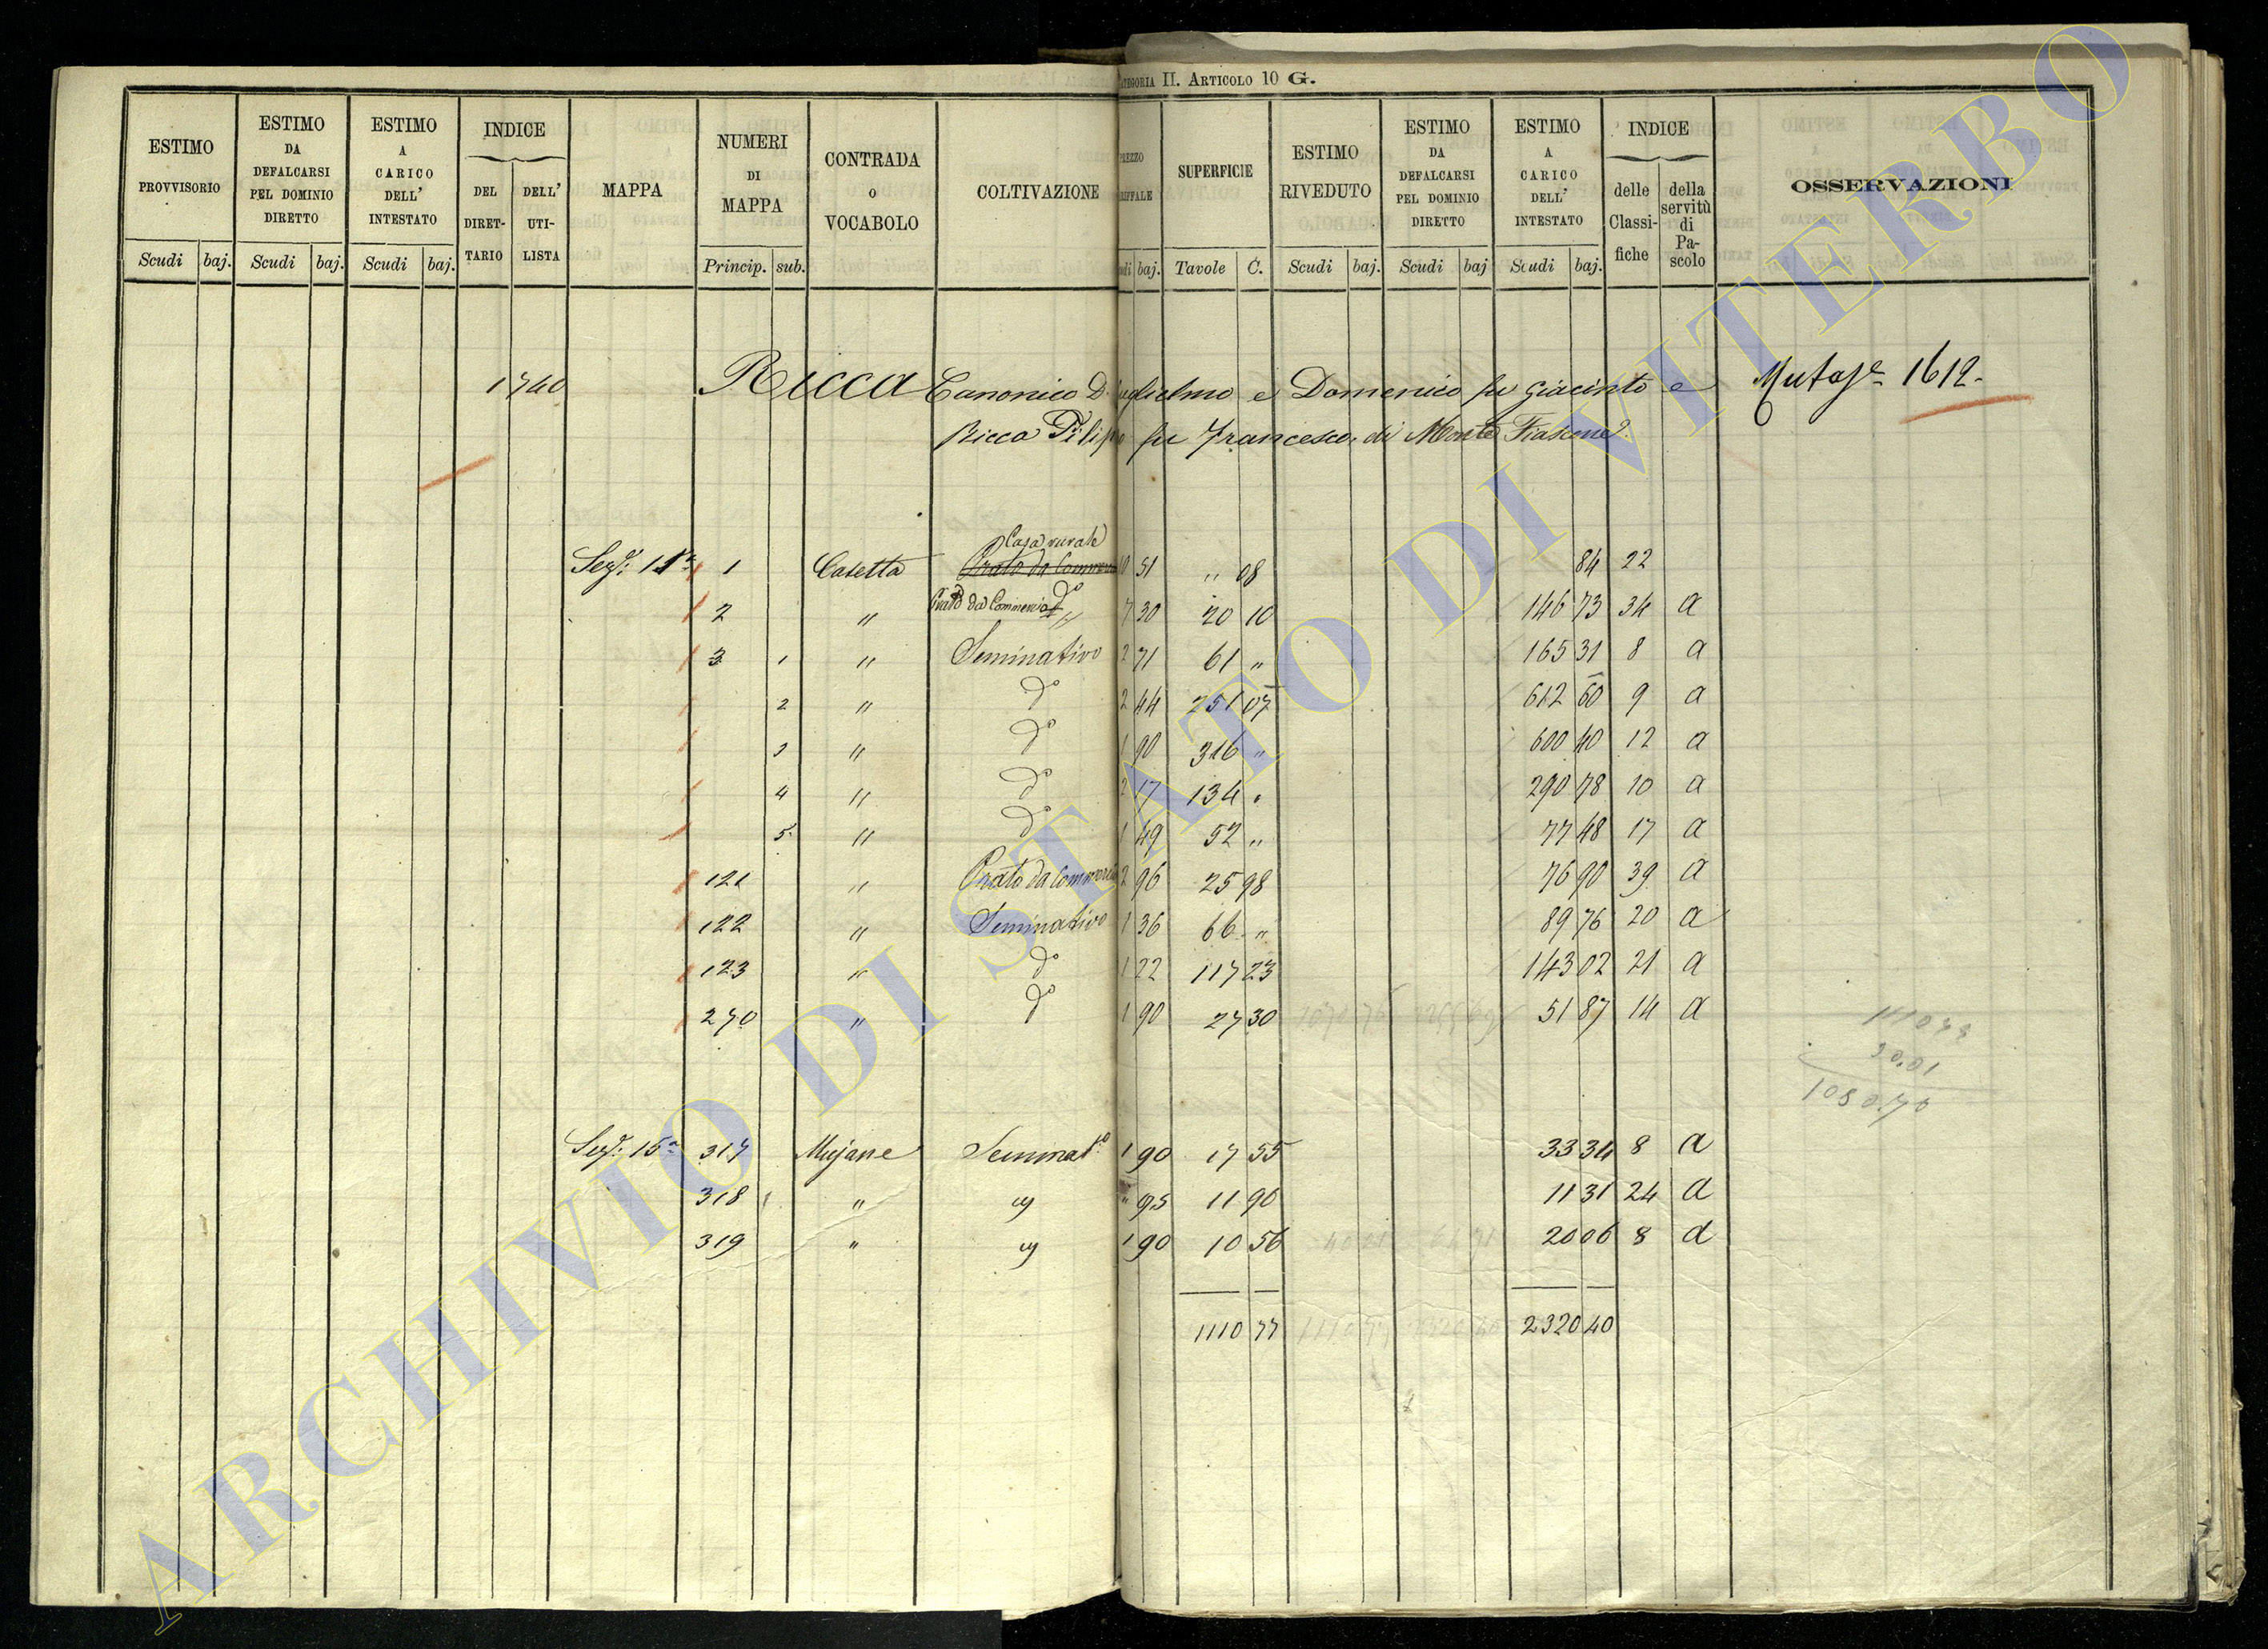 CATEGORIA II. ARTICOLO 10 G.
ESTIMO PROVVISORIO Scudi baj.
ESTIMO DA DEFALCARSI PEL DOMINIO DIRETTO Scudi baj.
ESTIMO A CARICO DELL' INTESTATO Scudi baj.
INDICE DEL DIRETTARIO DELL' UTILISTA
MAPPA
NUMERI DI MAPPA Princip. sub.
CONTRADA O VOCABOLO
COLTIVAZIONE
baj.
SUPERFICIE Tavole C.
ESTIMO RIVEDUTO Scudi baj.
ESTIMO DA DEFALCARSI PEL DOMINIO DIRETTO Scudi baj
ESTIMO A CARICO DELL' INTESTATO Scudi baj.
INDICE delle Classifiche della servitù di Pascolo
OSSERVAZIONI
1740 Ricca Canonico D. Guglielmo e Domenico fu Giacinto e
Ricca Filippo fu Francesco, di Monte Fiascone
1612
Casa rurale
Sez: 11ª 1 Casetta Prato da Commercio 51 " 08 84 22
2 " Prato da Commercio dº 7 30 20 10 146 73 34 a
3 1 " Seminativo 2 71 61 " 165 31 8 a
2 " dº 2 44 251 07 612 60 9 a
3 " dº 1 90 316 " 600 40 12 a
4 " dº 2 17 134 " 290 78 10 a
5 " dº 1 49 52 " 77 48 17 a
121 " Prato da Commercio 2 96 25 98 76 90 39 a
122 " Seminativo 1 36 66 " 89 76 20 a
123 " dº 1 22 117 23 143 02 21 a
270 " dº 1 90 27 30 51 87 14 a
Sez: 15ª 317 Mujane Seminatº 1 90 17 55 33 34 8 a
318 " " 95 11 90 11 31 24 a
319 " 1 90 10 56 20 06 8 a
1110 77 2320 40
ARCHIVIO DI STATO DI VITERBO